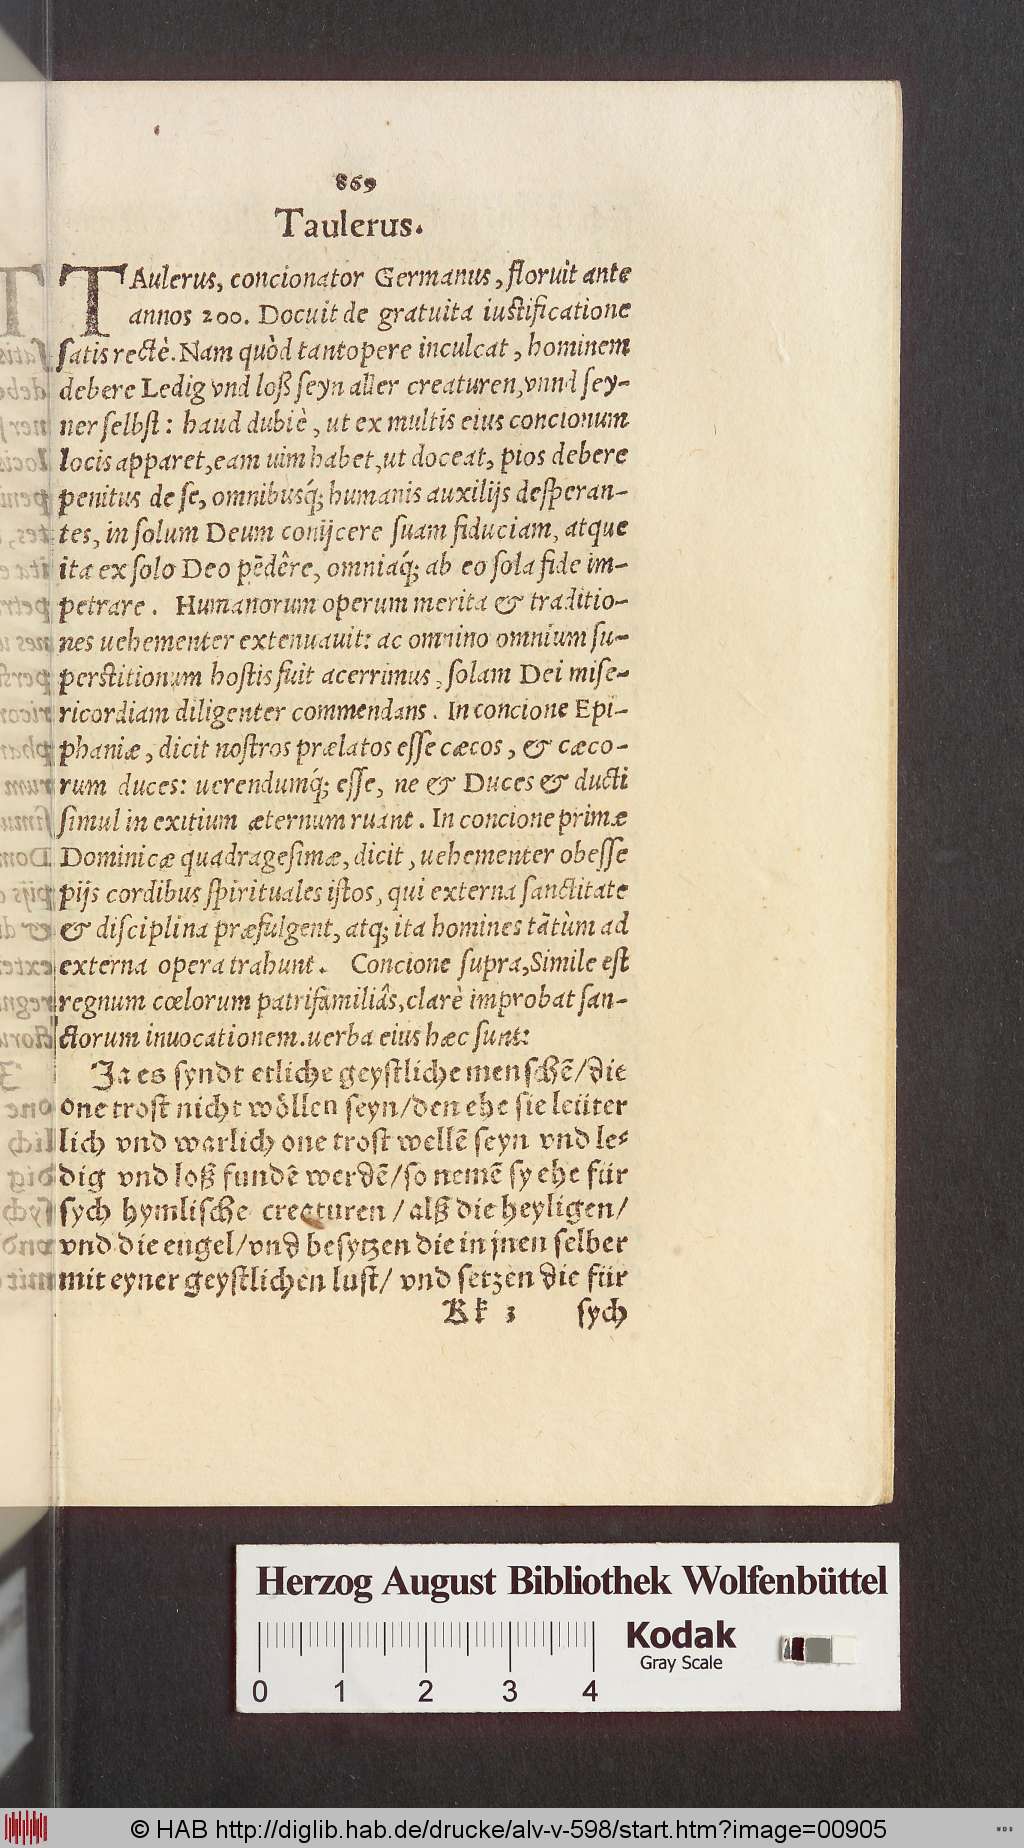 869
Taulerus.
TAulerus, concionator Germanus, floruit ante
annos 200. Docuit de gratuita iustificatione
satis rectè. Nam quòd tantopere inculcat, hominem
debere Ledig vnd loß seyn aller creaturen, vnnd sey-
ner selbst: haud dubiè, ut ex multis eius concionum
locis apparet, eam uim habet, ut doceat, pios debere
penitus de se, omnibusq́; humanis auxilijs desperan-
tes, in solum Deum conijcere suam fiduciam, atque
ita ex solo Deo pēdêre, omniaq́; ab eo sola fide im-
petrare. Humanorum operum merita & traditio-
nes uehementer extenuauit: ac omnino omnium su-
perstitionum hostis fuit acerrimus, solam Dei mise-
ricordiam diligenter commendans. In concione Epi-
phaniæ, dicit nostros prælatos esse cæcos, & cæco-
rum duces: uerendumq́; esse, ne & Duces & ducti
simul in exitium æternum ruant. In concione primæ
Dominicæ quadragesimæ, dicit, uehementer obesse
pijs cordibus spirituales istos, qui externa sanctitate
& disciplina præfulgent, atq; ita homines tātùm ad
externa opera trahunt. Concione supra, Simile est
regnum cœlorum patrifamiliâs, clarè improbat san-
ctorum inuocationem. uerba eius hæc sunt:
Ja es syndt etliche geystliche menschē/die
one trost nicht wöllen seyn/den ehe sie leüter
lich vnd warlich one trost wellē seyn vnd le-
dig vnd loß fundē werdē/so nemē sy ehe für
sych hymlische creaturen/alß die heyligen/
vnd die engel/vnd besytzen die in jnen selber
mit eyner geystlichen lust/ vnd setzen die für
Kk 3 sych
Herzog August Bibliothek Wolfenbüttel
0 1 2 3 4
Kodak
Gray Scale
© HAB http://diglib.hab.de/drucke/alv-v-598/start.htm?image=00905